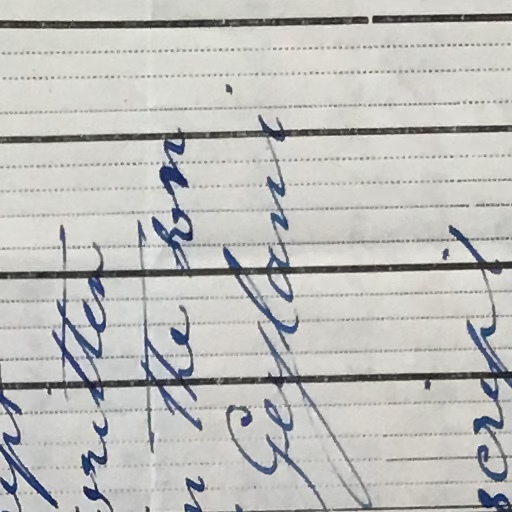 written
the son
Geylani
script